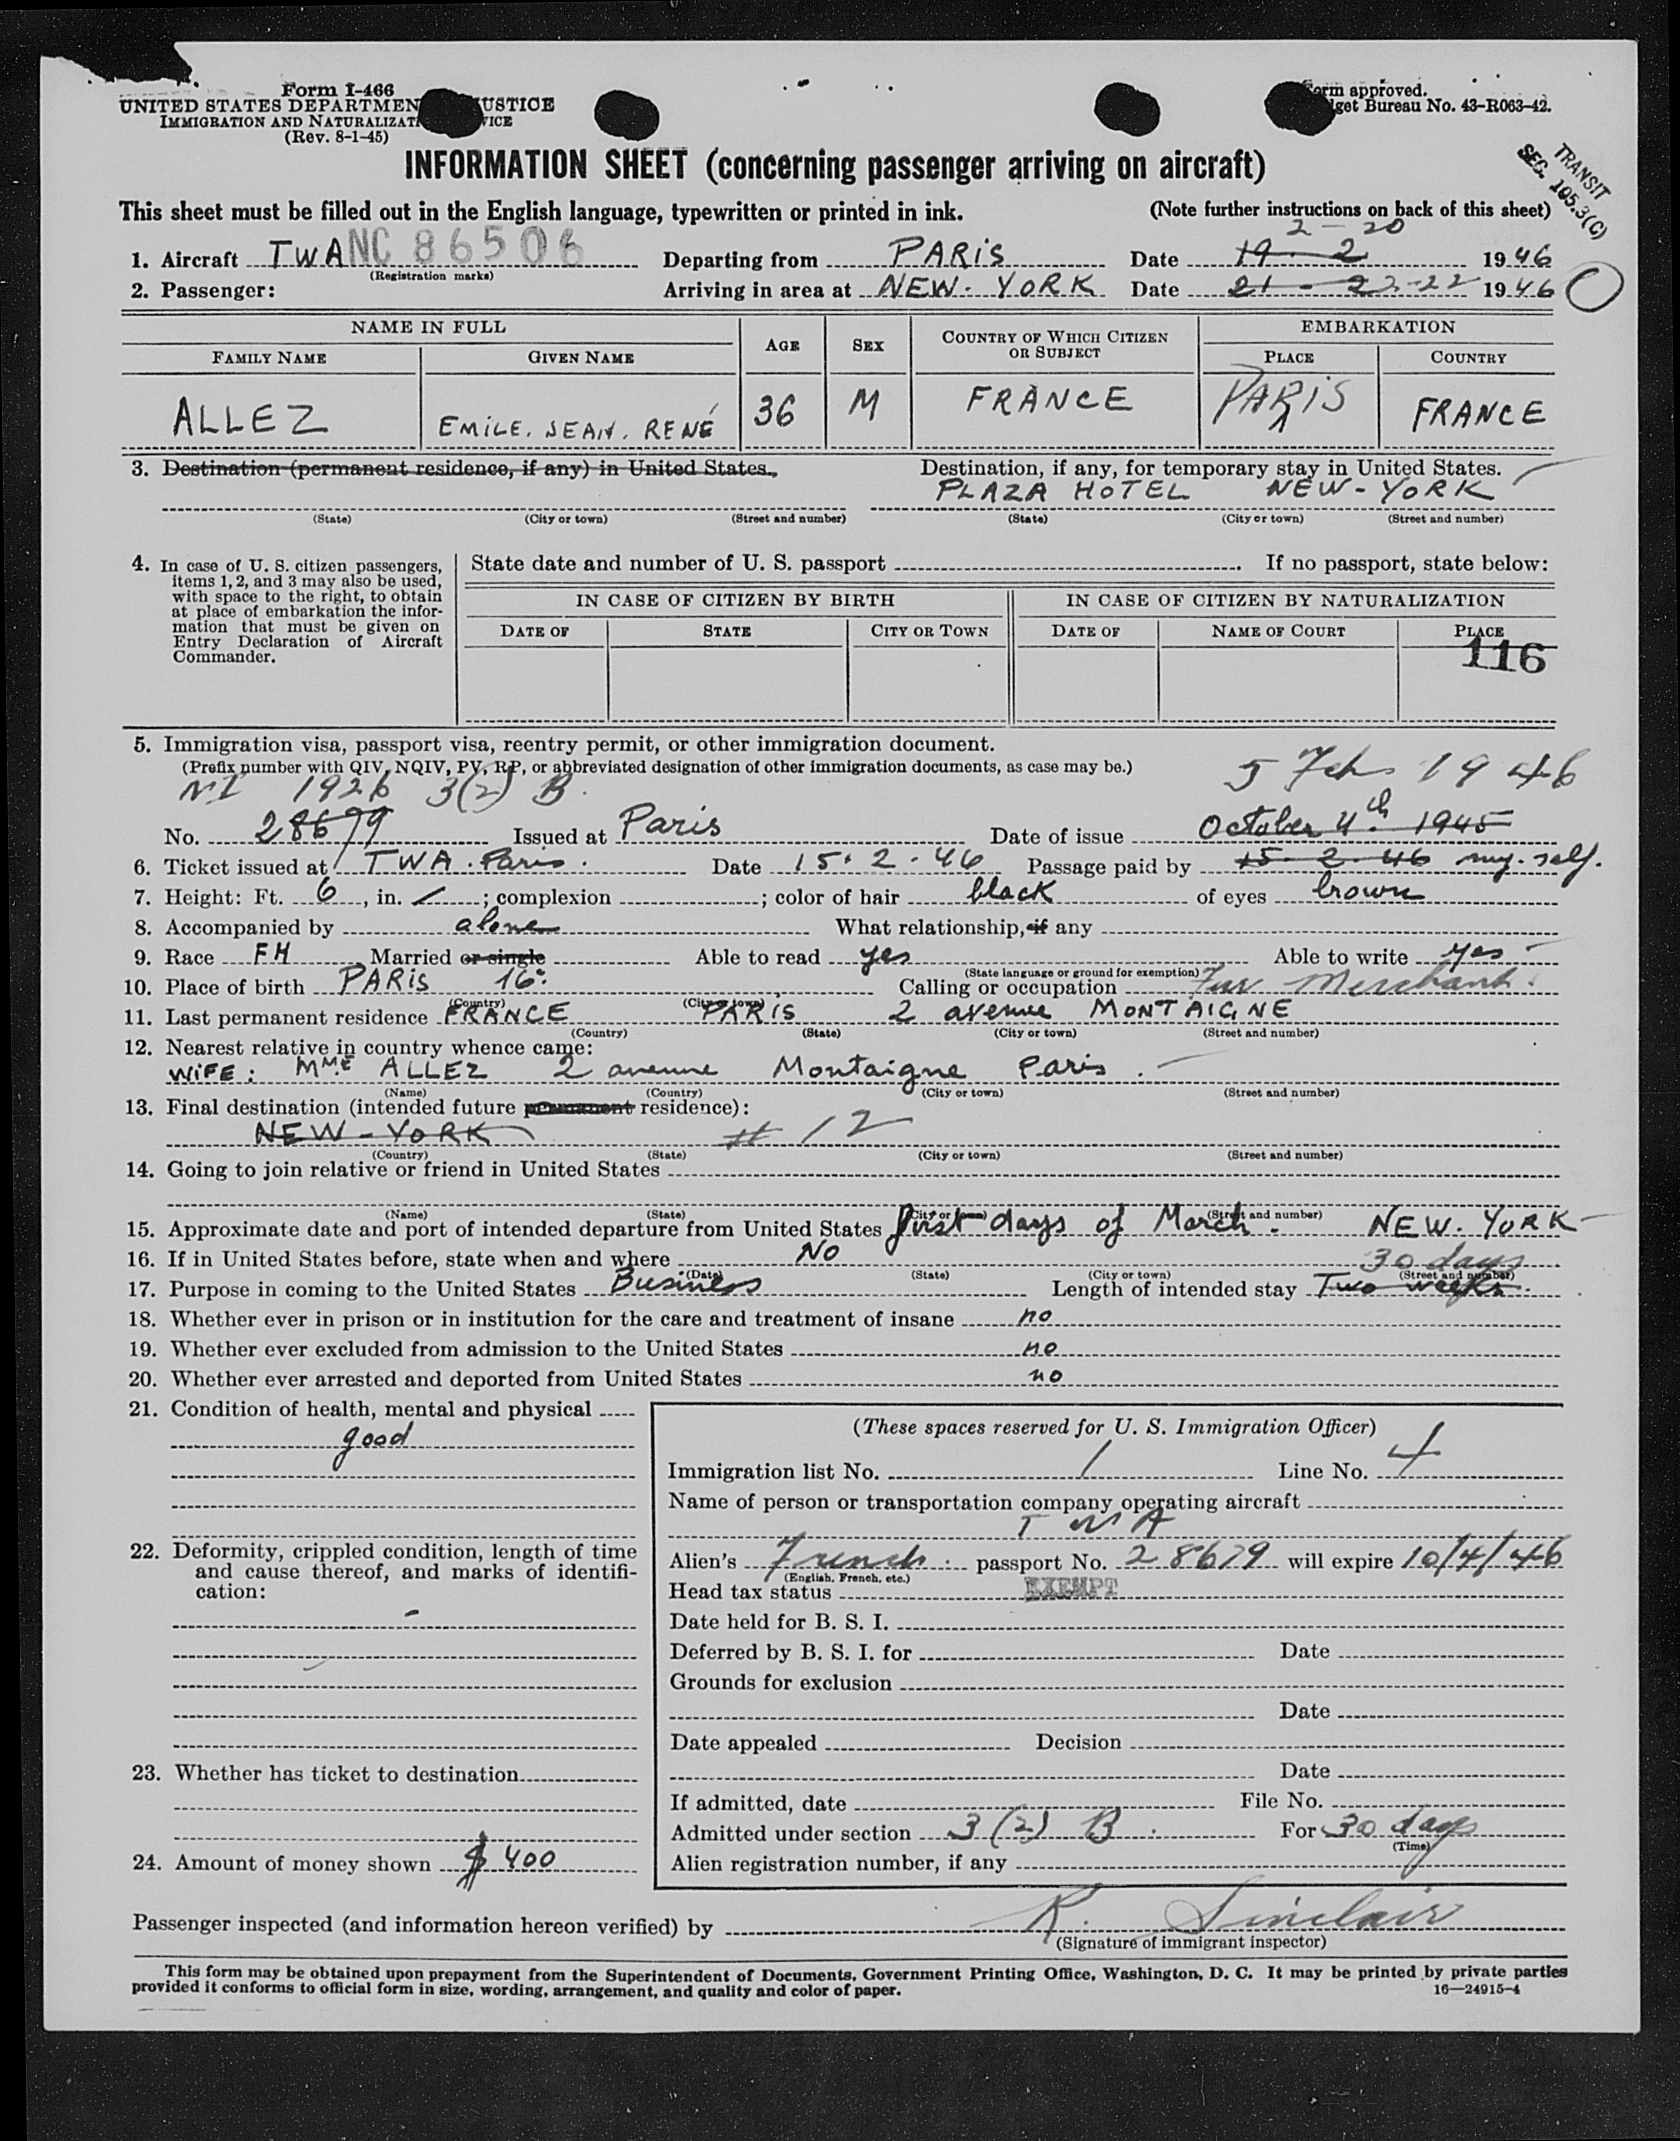 Form I-466
UNITED STATES DEPARTMEN USTICE
IMMIGRATION AND NATURALIZAT VICE
(Rev. 8-1-45)
Form approved.
get Bureau No. 43-R063-42.
TRANSIT
SEC. 105.3(C)
INFORMATION SHEET (concerning passenger arriving on aircraft)
This sheet must be filled out in the English language, typewritten or printed in ink. (Note further instructions on back of this sheet)
2-20
1. Aircraft TWA NC 86506 Departing from PARIS Date 19. 2 1946
(Registration marks)
2. Passenger: Arriving in area at NEW-YORK Date 21 - 2 2-22 1946
NAME IN FULL AGE SEX COUNTRY OF WHICH CITIZEN OR SUBJECT EMBARKATION
FAMILY NAME GIVEN NAME PLACE COUNTRY
ALLEZ EMILE. JEAN. RENÉ 36 M FRANCE PARIS FRANCE
3. Destination (permanent residence, if any) in United States. Destination, if any, for temporary stay in United States.
PLAZA HOTEL NEW-YORK
(State) (City or town) (Street and number) (State) (City or town) (Street and number)
4. In case of U. S. citizen passengers, items 1, 2, and 3 may also be used, with space to the right, to obtain at place of embarkation the information that must be given on Entry Declaration of Aircraft Commander.
State date and number of U. S. passport . If no passport, state below:
IN CASE OF CITIZEN BY BIRTH IN CASE OF CITIZEN BY NATURALIZATION
DATE OF STATE CITY OR TOWN DATE OF NAME OF COURT PLACE
116
5. Immigration visa, passport visa, reentry permit, or other immigration document.
(Prefix number with QIV, NQIV, PV, RP, or abbreviated designation of other immigration documents, as case may be.)
NI 1926 3(2) B 5 Feb 1946
No. 28679 Issued at Paris Date of issue October 4th 1945
6. Ticket issued at TWA. Paris. Date 15.2.46 Passage paid by 15. 2. 46 my-self.
7. Height: Ft. 6, in. ; complexion ; color of hair black of eyes brown
8. Accompanied by alone What relationship, if any
9. Race FH Married or single Able to read yes Able to write yes
(State language or ground for exemption)
10. Place of birth PARIS 16e Calling or occupation Fur Merchant.
(Country) (City or town)
11. Last permanent residence FRANCE PARIS 2 avenue MONTAIGNE
(Country) (State) (City or town) (Street and number)
12. Nearest relative in country whence came:
WIFE: MME ALLEZ 2 avenue Montaigne Paris.
(Name) (Country) (City or town) (Street and number)
13. Final destination (intended future permanent residence):
NEW-YORK # 12
(Country) (State) (City or town) (Street and number)
14. Going to join relative or friend in United States
(Name) (State) (City or town) (Street and number)
15. Approximate date and port of intended departure from United States first days of March. NEW. YORK
16. If in United States before, state when and where NO 30 days
(Date) (State) (City or town) (Street and number)
17. Purpose in coming to the United States Business Length of intended stay Two weeks.
18. Whether ever in prison or in institution for the care and treatment of insane no
19. Whether ever excluded from admission to the United States no
20. Whether ever arrested and deported from United States no
21. Condition of health, mental and physical
good
22. Deformity, crippled condition, length of time and cause thereof, and marks of identification:
-
23. Whether has ticket to destination
24. Amount of money shown $ 400
(These spaces reserved for U. S. Immigration Officer)
Immigration list No. 1 Line No. 4
Name of person or transportation company operating aircraft
TWA
Alien's French passport No. 28679 will expire 10/4/46
(English, French, etc.)
Head tax status EXEMPT
Date held for B. S. I.
Deferred by B. S. I. for Date
Grounds for exclusion
Date
Date appealed Decision
Date
If admitted, date File No.
Admitted under section 3 (2) B For 30 days
(Time)
Alien registration number, if any
Passenger inspected (and information hereon verified) by R. Sinclair
(Signature of immigrant inspector)
This form may be obtained upon prepayment from the Superintendent of Documents, Government Printing Office, Washington, D. C. It may be printed by private parties
provided it conforms to official form in size, wording, arrangement, and quality and color of paper. 16—24915-4